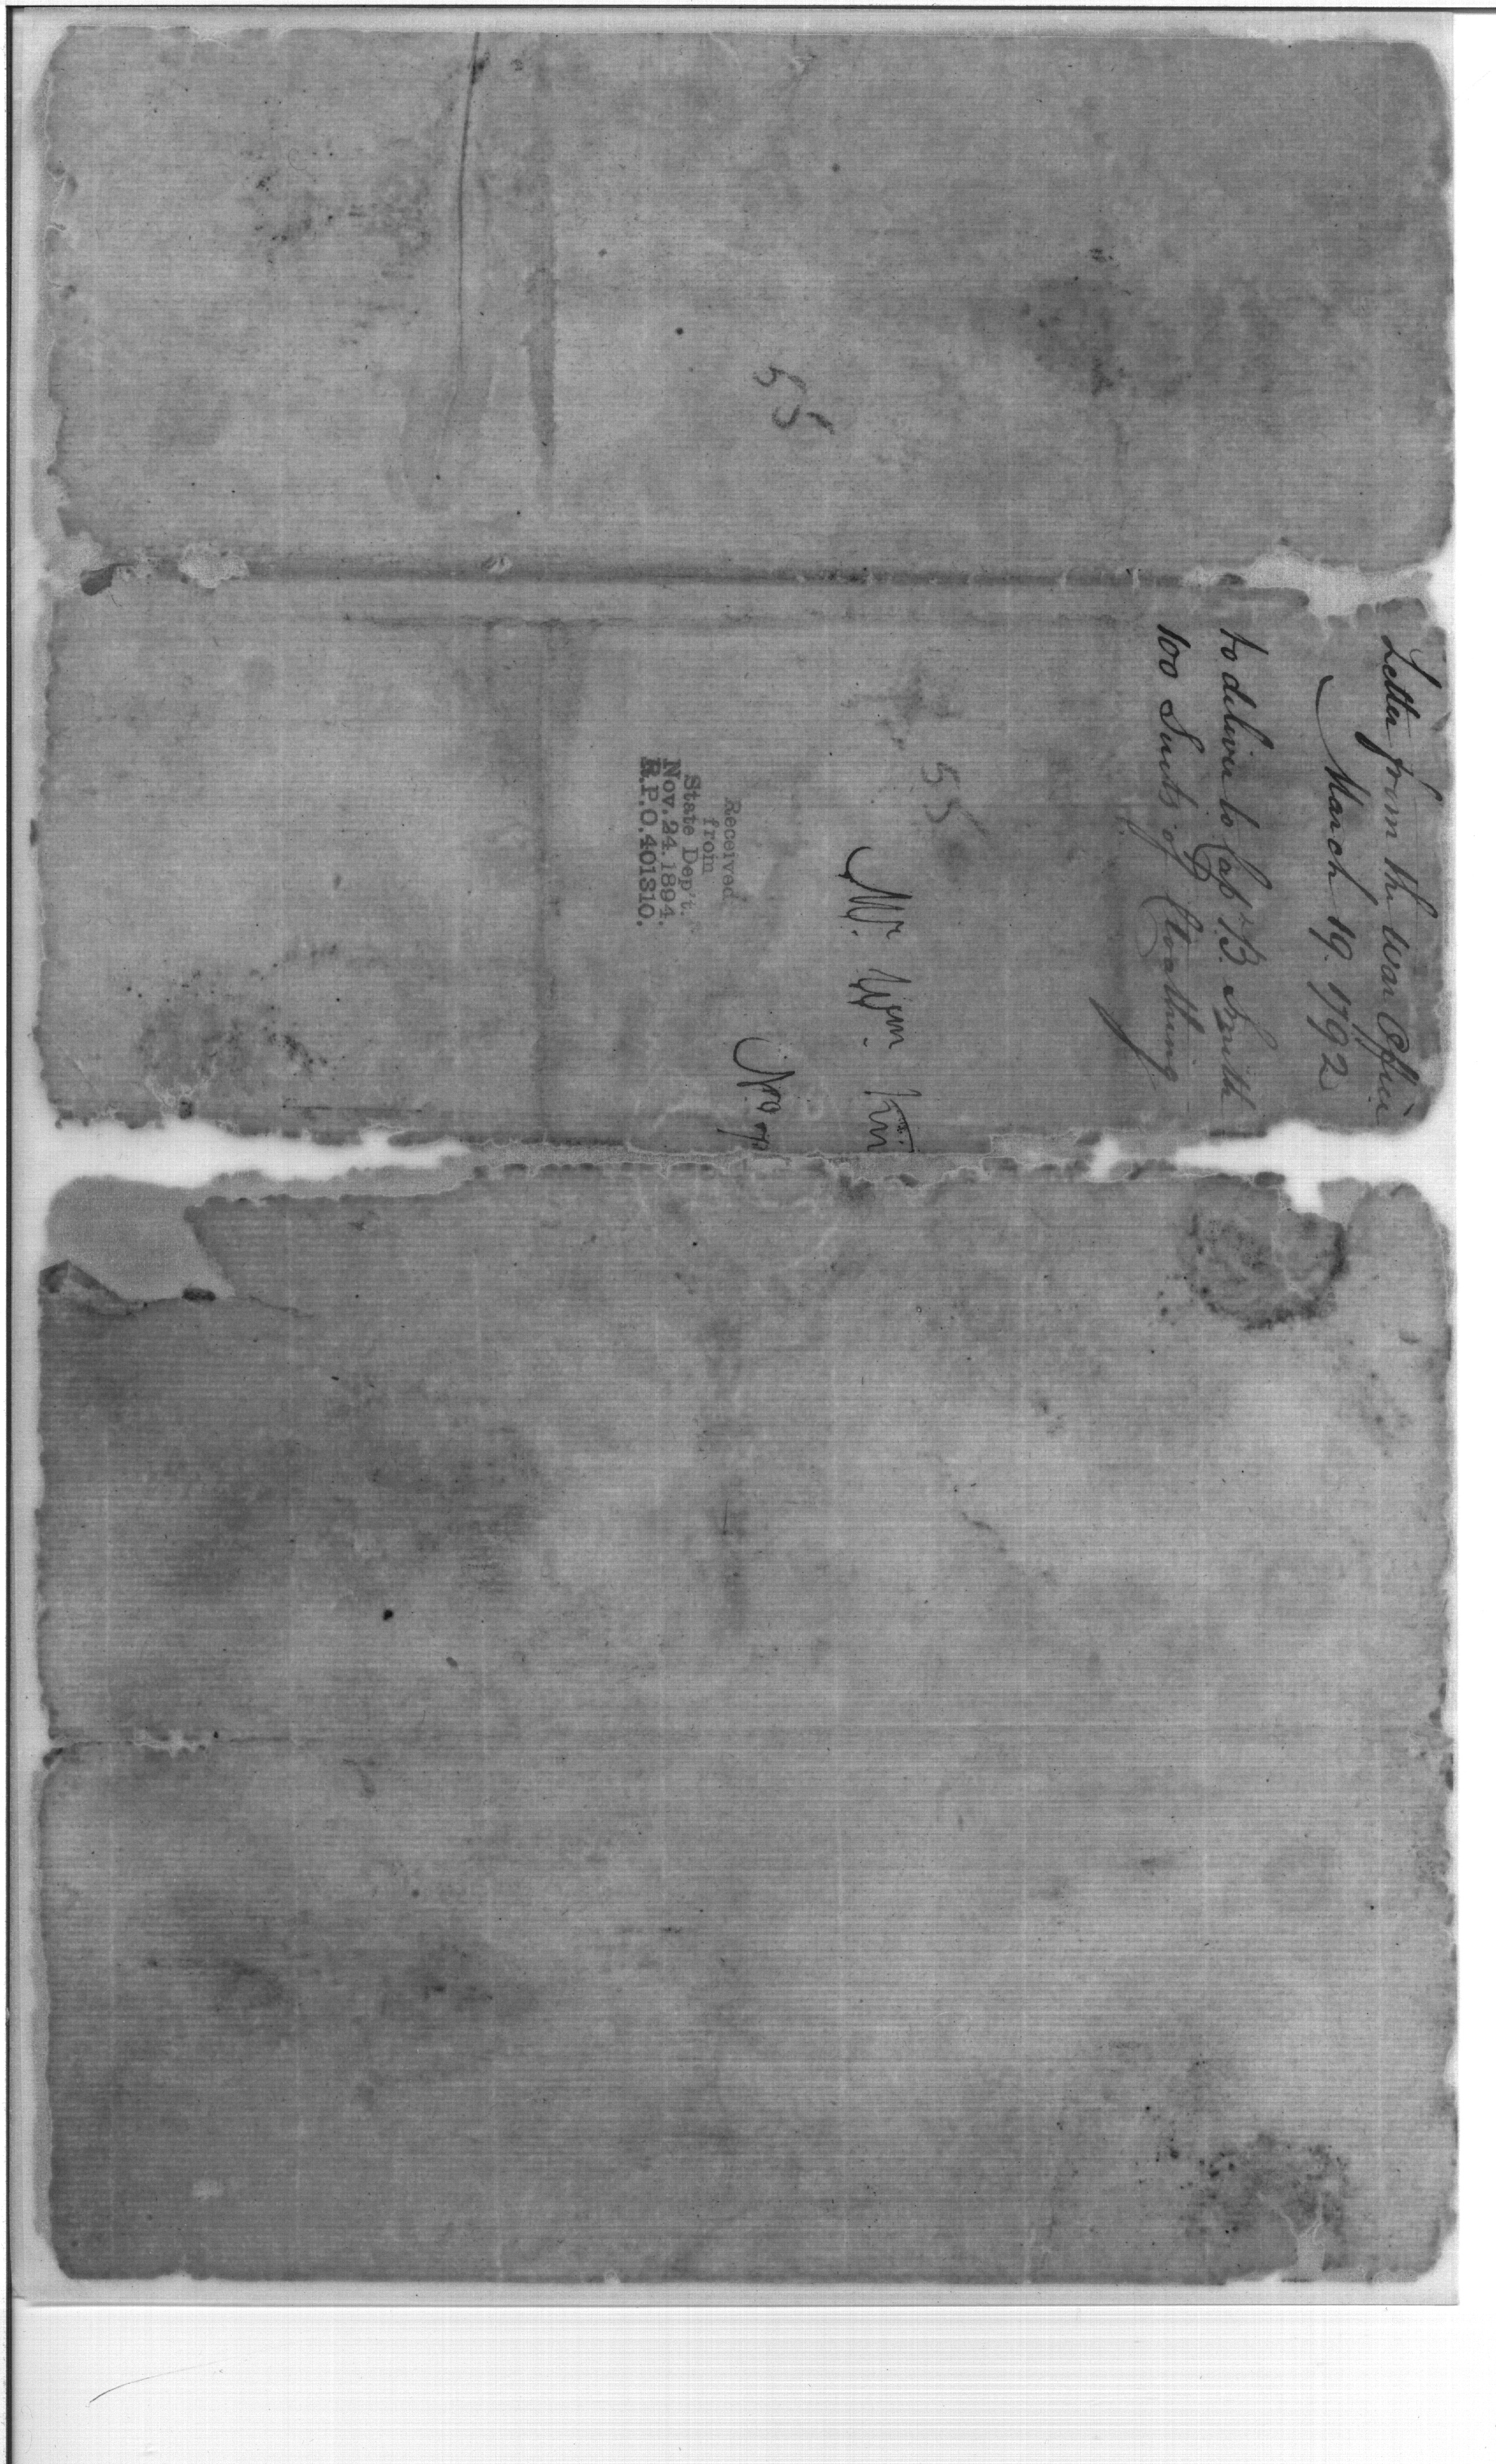 Letter from the War Office
March 19. 1792
to deliver to Capt. B. Smith
100 Suits of Cloathing
55
Mr. Wm.
Received
from
State Dep't.
Nov. 24. 1894.
R.P.O. 401310.
55